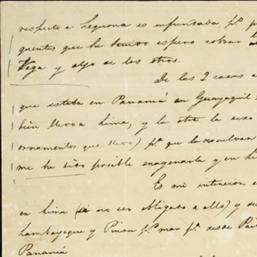 respecto a Lequona es infundada, pr. p
quentes que he tenido espero cobrar
Vega y algo de los otros.
De las 2 casas
que estaba en Panamá en Guayaquil
bien lleva a Lima, y la otra le
ornamentos que llevó) pr. que la
me ha sido posible enagenarla y en
Es mi intencion
en Lima (a no ser obligado a ello) y
Lambayeque y Piura pr. mar pr. desde Pai
Panamá